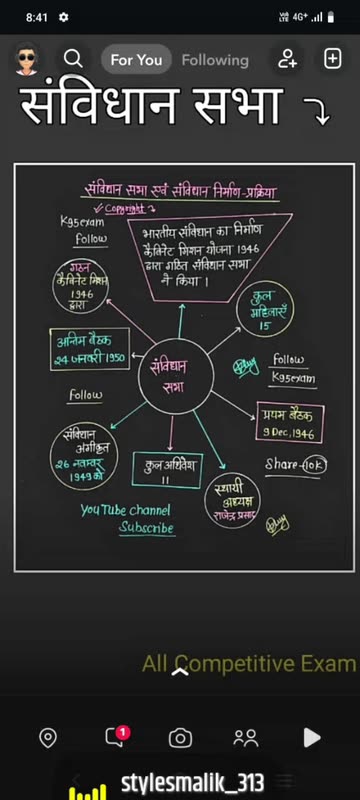 8:41
VoLTE 4G+
For You Following
संविधान सभा
संविधान सभा एवं संविधान निर्माण-प्रक्रिया
Copyright
K95exam
Follow
भारतीय संविधान का निर्माण
कैबिनेट मिशन योजना 1946
द्वारा गठित संविधान सभा
ने किया।
गठन
कैबिनेट मिशन
1946
द्वारा
कुल
महिलाएँ
15
अन्तिम बैठक
24 जनवरी 1950
संविधान
सभा
Follow
K95exam
Follow
प्रथम बैठक
9 Dec, 1946
संविधान
अंगीकृत
26 नवम्बर
1949 को
कुल अधिवेशन
11
Share-10K
स्थायी
अध्यक्ष
राजेन्द्र प्रसाद
YouTube channel
Subscribe
All Competitive Exam
1
stylesmalik_313